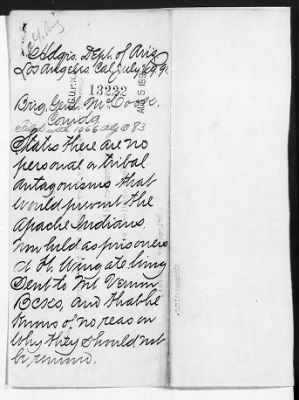 Hdqrs. Dept. of Ariz
Los Angeles, Cal, July
13222
Brig. Gen. McCook,
Comdg.
Filed with 1066 ago 83
States there are no
personal or tribal
antagonisms that
would prevent the
Apache Indians
now held as prisoners
at Ft. Wingate being
sent to Mt Vernon
Bcks, and that he
knows of no reason
why they should not
be